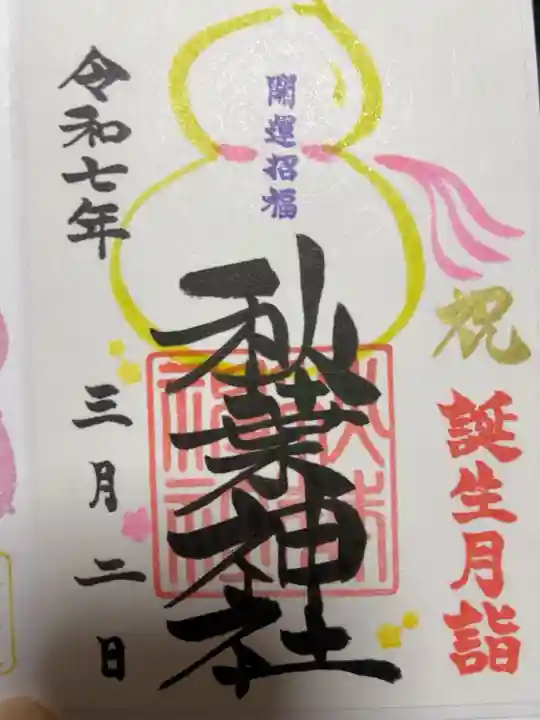 祝
誕生月詣
開運招福
秋葉神社
令和七年
三月二日